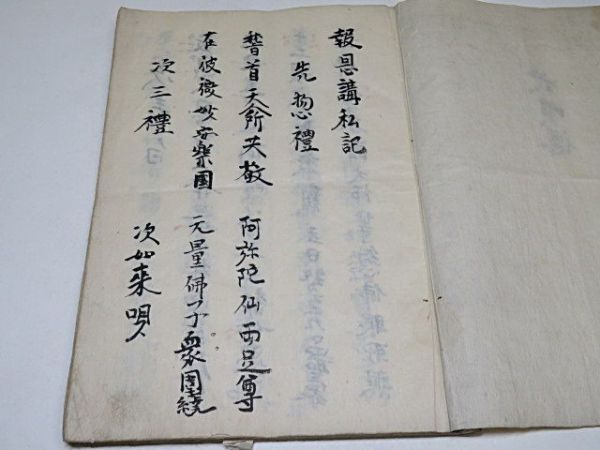 報恩講私記
先惣禮
稽首天所共敬 阿弥陀仙両足尊
在彼微妙安樂國 无量佛子衆圍繞
次三禮 次如来唄